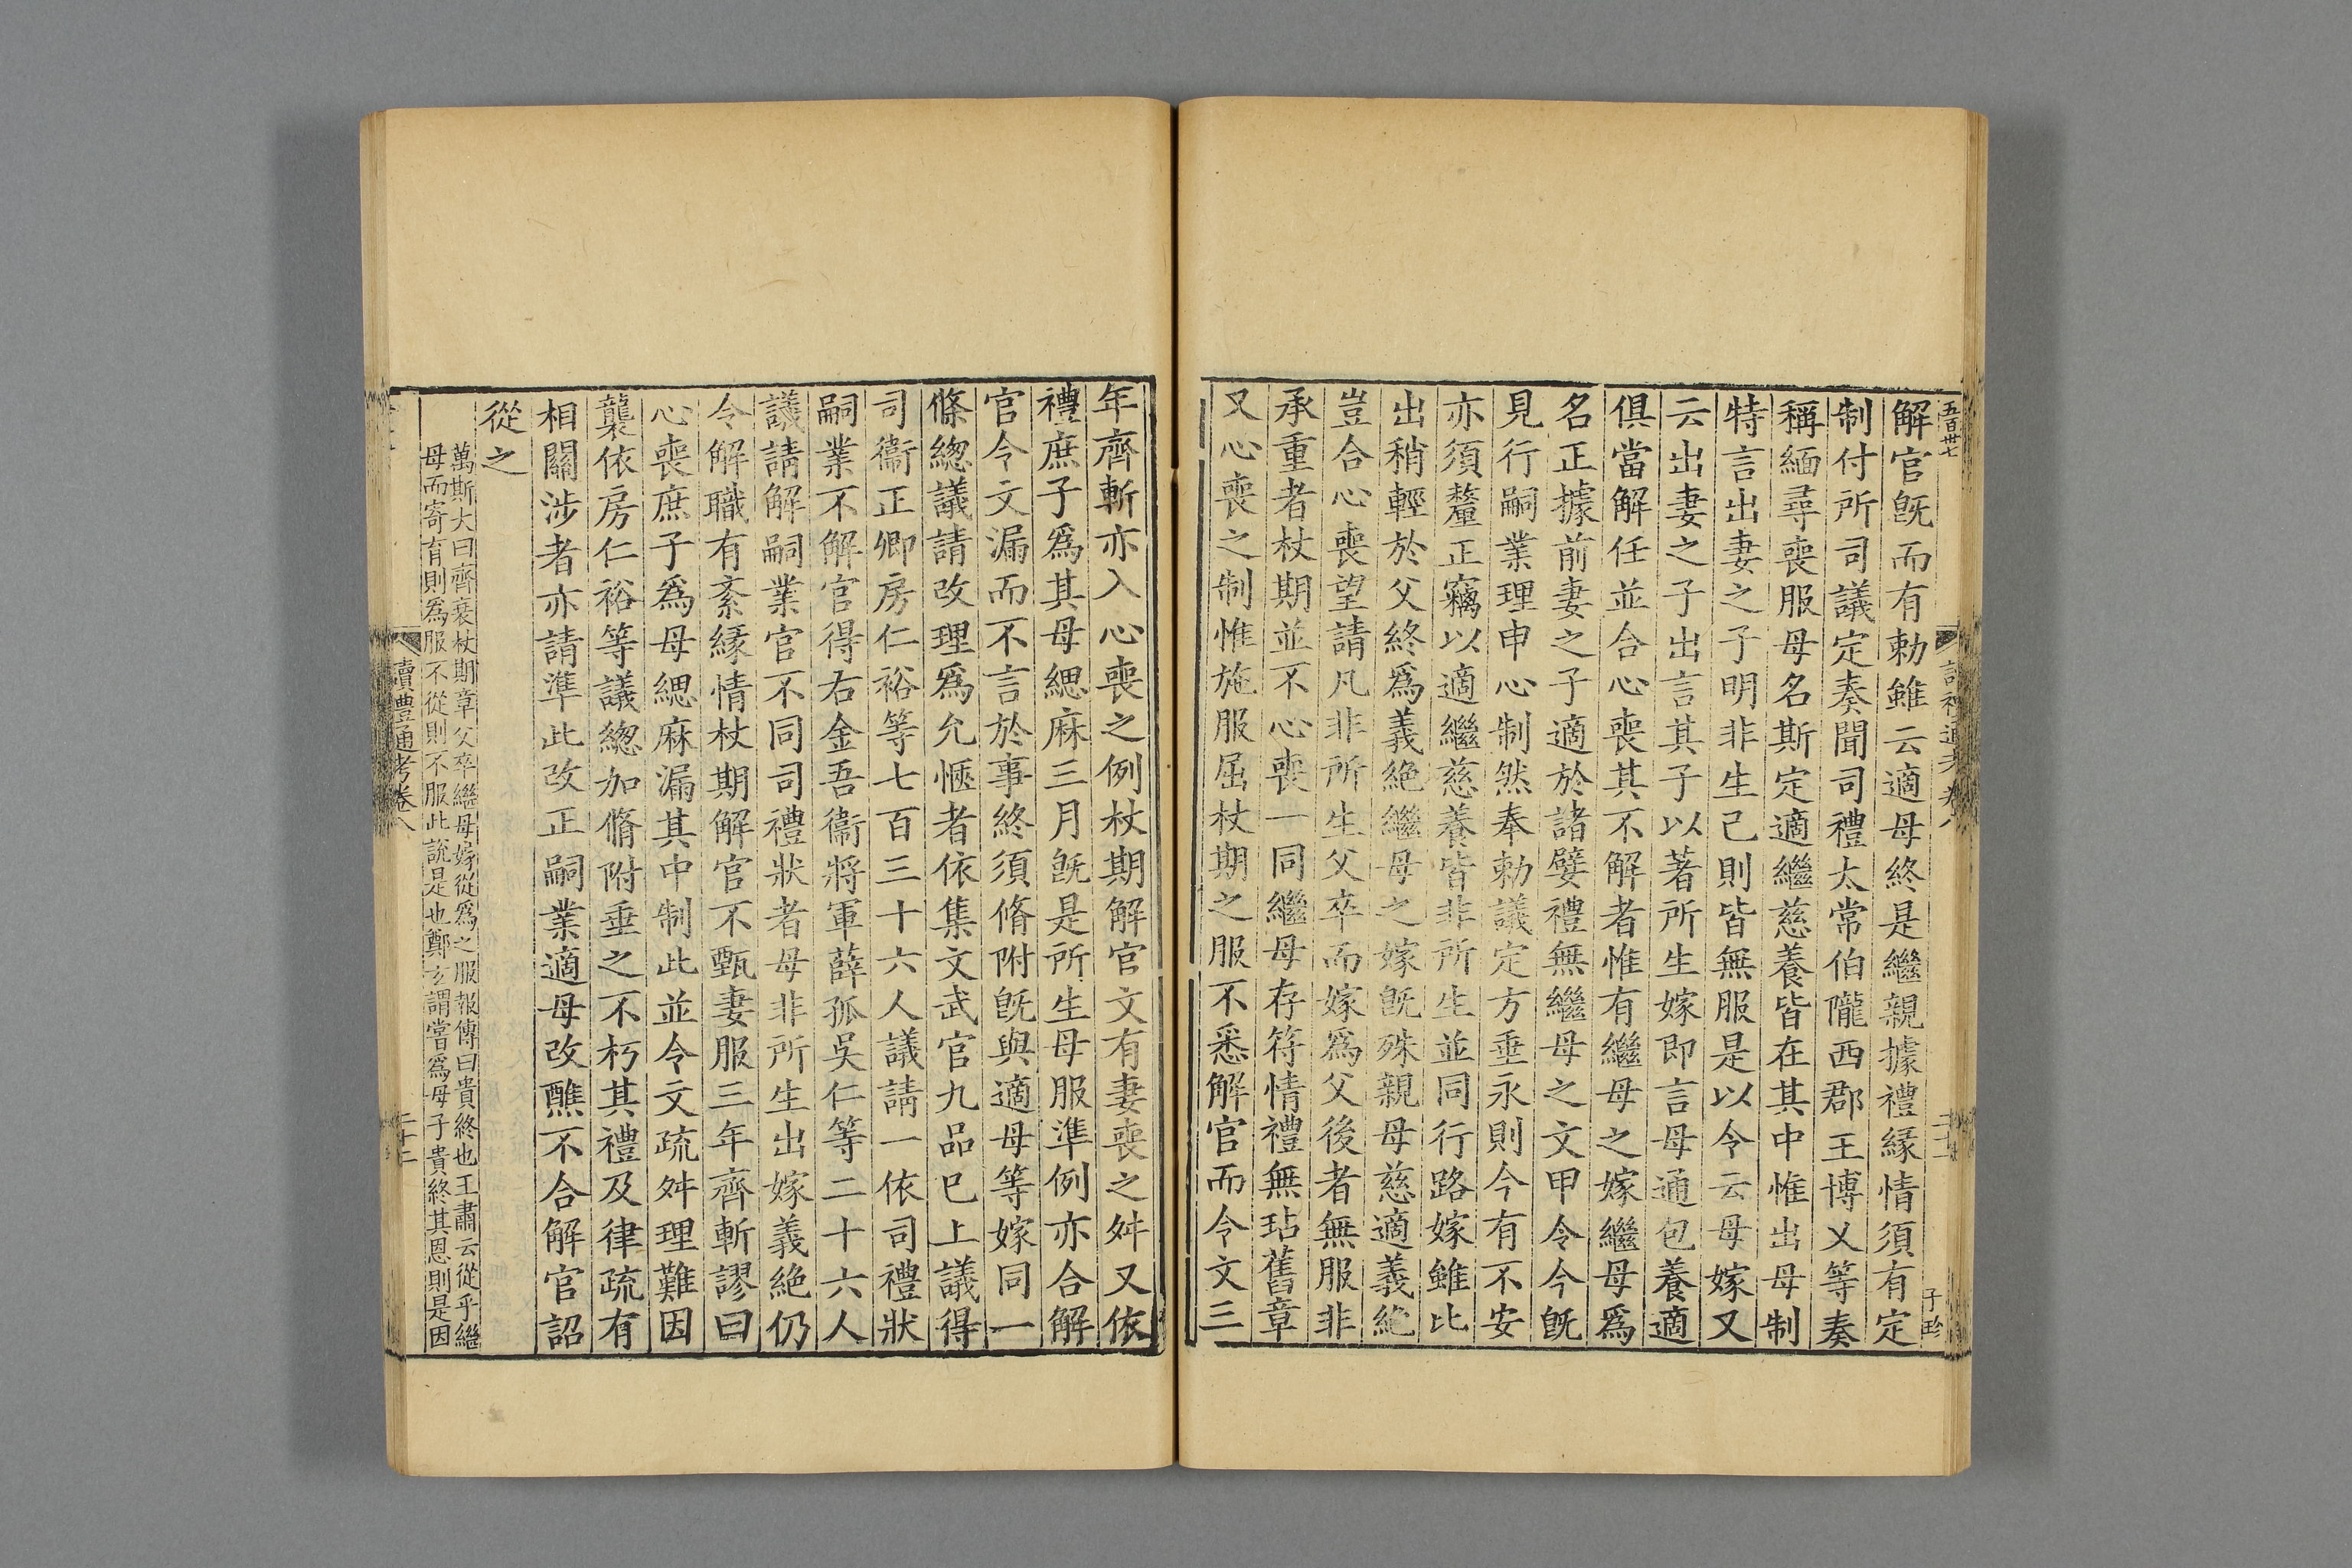 五百卅七
解官旣而有勅雖云適母終是繼親據禮緣情須有定
制付所司議定奏聞司禮太常伯隴西郡王博乂等奏
稱緬尋喪服母名斯定適繼慈養皆在其中惟出母制
特言出妻之子明非生己則皆無服是以令云母嫁又
云出妻之子出言其子以著所生嫁即言母通包養適
俱當解任並合心喪其不解者惟有繼母之嫁繼母爲
名正據前妻之子適於諸孽禮無繼母之文甲令今旣
見行嗣業理申心制然奉勅議定方垂永則今有不安
亦須釐正竊以適繼慈養皆非所生並同行路嫁雖比
出稍輕於父終爲義絶繼母之嫁旣殊親母慈適義絶
豈合心喪望請凡非所生父卒而嫁爲父後者無服非
承重者杖期並不心喪一同繼母存符情禮無玷舊章
又心喪之制惟施服屈杖期之服不悉解官而令文三
年齊斬亦入心喪之例杖期解官文有妻喪之舛又依
禮庶子爲其母緦麻三月旣是所生母服準例亦合解
官令文漏而不言於事終須脩附旣與適母等嫁同一
條緫議請改理爲允愜者依集文武官九品已上議得
司衞正卿房仁裕等七百三十六人議請一依司禮狀
嗣業不解官得右金吾衞將軍薛孤吳仁等二十六人
議請解嗣業官不同司禮狀者母非所生出嫁義絶仍
令解職有紊緣情杖期解官不甄妻服三年齊斬謬曰
心喪庶子爲母緦麻漏其中制此並令文疏舛理難因
襲依房仁裕等議緫加脩附垂之不朽其禮及律疏有
相關涉者亦請準此改正嗣業適母改醮不合解官詔
從之
萬斯大曰齊衰杖期章父卒繼母嫁從爲之服報傳曰貴終也王肅云從乎繼
母而寄育則爲服不從則不服此說是也鄭玄謂嘗爲母子貴終其恩則是因
讀禮通考卷八
二十二